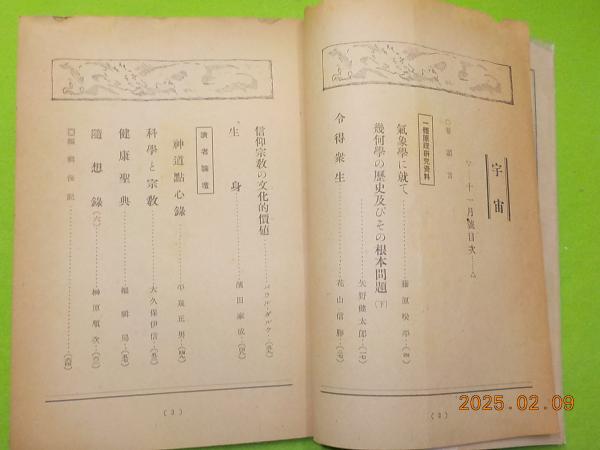 宇宙
▽—十一月號目次—△
◎卷頭言
一體原理研究資料
氣象學に就て…………藤原咲平…(四)
幾何學の歷史及びその根本問題(下)…矢野健太郎…(一七)
令得衆生…………花山信勝…
(2)
信仰宗敎の文化的價値…………パウル・ダルケ…
生身…………濱田本成…
讀者論壇
神道點心錄…………正男…
科學と宗敎…………大久保伊信…
健康聖典…………編輯局…
隨想錄(六)…………榊原順次…
◎編輯後記…………
(3)
2025.02.09